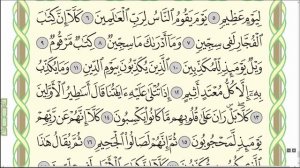 لِيَوْمٍ عَظِيمٍ ٥ يَوْمَ يَقُومُ ٱلنَّاسُ لِرَبِّ ٱلْعَٰلَمِينَ ٦ كَلَّآ إِنَّ كِتَٰبَ
ٱلْفُجَّارِ لَفِى سِجِّينٍ ٧ وَمَآ أَدْرَىٰكَ مَا سِجِّينٌ ٨ كِتَٰبٌ مَّرْقُومٌ ٩
وَيْلٌ يَوْمَئِذٍ لِّلْمُكَذِّبِينَ ١٠ ٱلَّذِينَ يُكَذِّبُونَ بِيَوْمِ ٱلدِّينِ ١١ وَمَا يُكَذِّبُ
بِهِۦٓ إِلَّا كُلُّ مُعْتَدٍ أَثِيمٍ ١٢ إِذَا تُتْلَىٰ عَلَيْهِ ءَايَٰتُنَا قَالَ أَسَٰطِيرُ ٱلْأَوَّلِينَ
١٣ كَلَّا بَلْ رَانَ عَلَىٰ قُلُوبِهِم مَّا كَانُوا۟ يَكْسِبُونَ ١٤ كَلَّآ إِنَّهُمْ عَن رَّبِّهِمْ
يَوْمَئِذٍ لَّمَحْجُوبُونَ ١٥ ثُمَّ إِنَّهُمْ لَصَالُوا۟ ٱلْجَحِيمِ ١٦ ثُمَّ يُقَالُ هَٰذَا